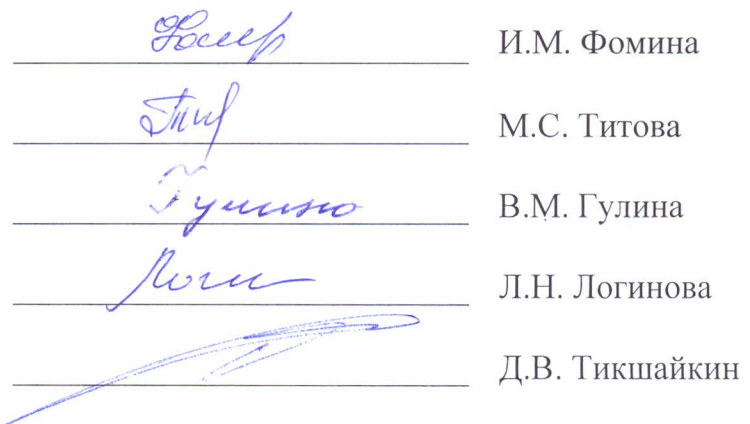 И.М. Фомина
М.С. Титова
Гулина В.М. Гулина
Логи Л.Н. Логинова
Д.В. Тикшайкин